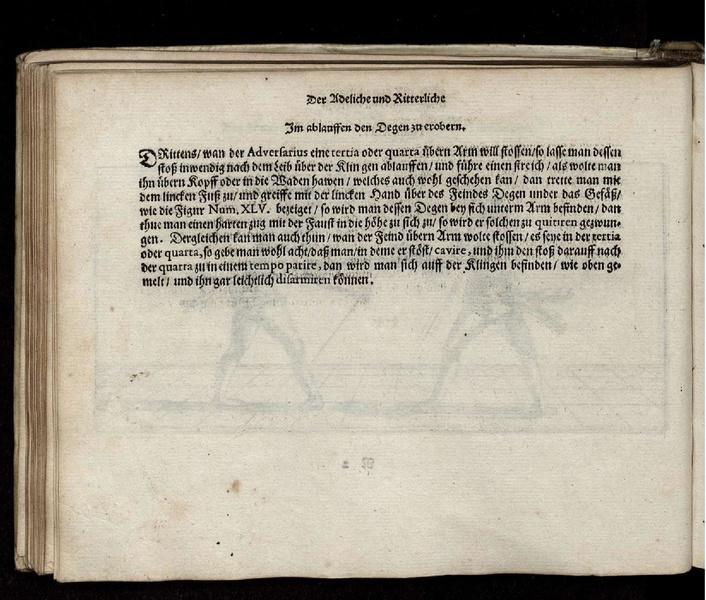 Der Adeliche und Ritterliche
Im ablauffen den Degen zu erobern.
DRittens/ wan der Adversarius eine tertia oder quarta übern Arm will stossen/ so lasse man dessen
stoß inwendig nach dem Leib über der Klingen ablauffen/ und führe einen streich/ als wolte man
ihn übern Kopff oder in die Waden hawen/ welches auch wohl geschehen kan/ dan trette man mit
dem lincken Fuß zu/ und greiffe mit der lincken Hand über des Feindes Degen under das Gefäß/
wie die Figur Num. XLV. bezeiget/ so wird man dessen Degen bey sich unterm Arm befinden/ dan
thue man einen harten zug mit der Faust in die höhe zu sich zu/ so wird er solchen zu quitiren gezwun-
gen. Dergleichen kan man auch thun/ wan der Feind übern Arm wolte stossen/ es seye in der tertia
oder quarta, so gebe man wohl acht/ daß man/ in deme er stöst/ cavire, und ihm den stoß darauff nach
der quarta zu in einem tempo parire, dan wird man sich auff der Klingen befinden/ wie oben ge-
melt/ und ihn gar leichtlich disarmiren können.